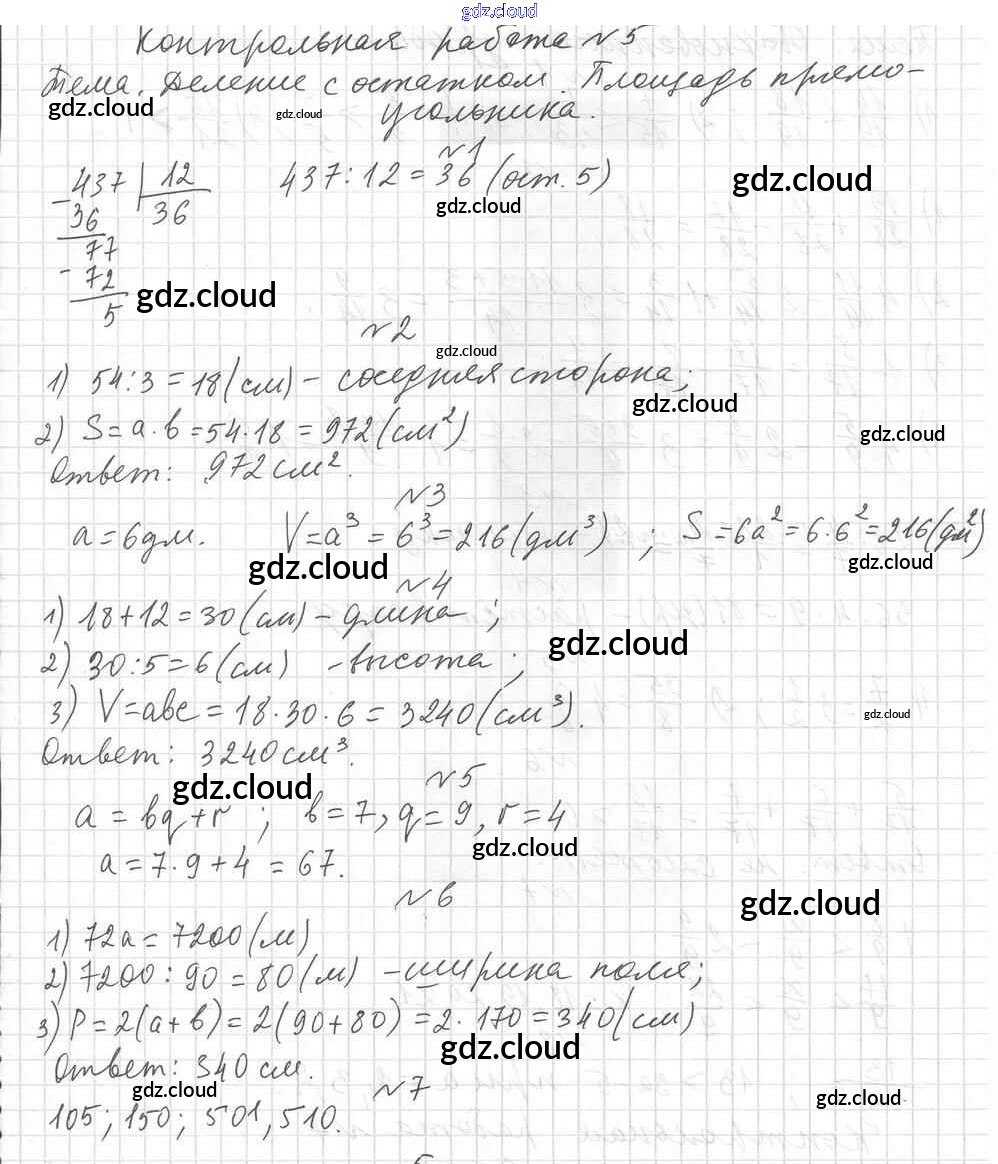 gdz.cloud
Контрольная работа №5
Тема. Деление с остатком. Площадь прямо-
gdz.cloud gdz.cloud
угольника.
№1
437 | 12 437:12=36 (ост. 5) gdz.cloud
gdz.cloud
- 36 36
77
- 72
5 gdz.cloud
№2
gdz.cloud
1) 54:3=18(см) – соседняя сторона;
gdz.cloud
2) S=a·b=54·18=972(см²) gdz.cloud
Ответ: 972см².
№3
a=6дм. V=a³=6³=216(дм³) ; S=6a²=6·6²=216(дм²)
gdz.cloud gdz.cloud
№4
1) 18+12=30(см) – длина ;
gdz.cloud
2) 30:5=6(см) – высота ;
3) V=abc=18·30·6=3240(см³). gdz.cloud
Ответ: 3240см³.
gdz.cloud №5
a=bq+r ; b=7, q=9, r=4
gdz.cloud
a=7·9+4=67.
№6 gdz.cloud
1) 72a=7200(м)
2) 7200:90=80(м) – ширина поля;
3) P=2(a+b)=2(90+80)=2·170=340(см)
gdz.cloud
Ответ: 340см.
gdz.cloud №7 gdz.cloud
105; 150; 501, 510.